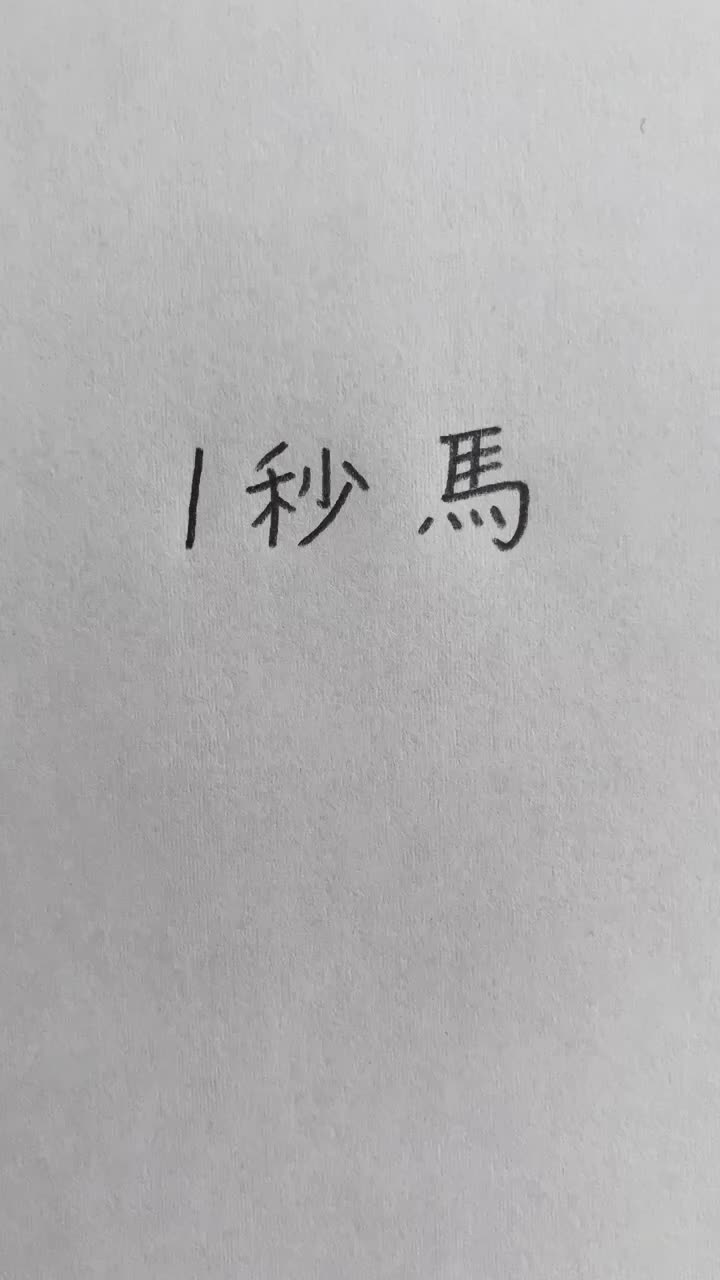 1秒馬